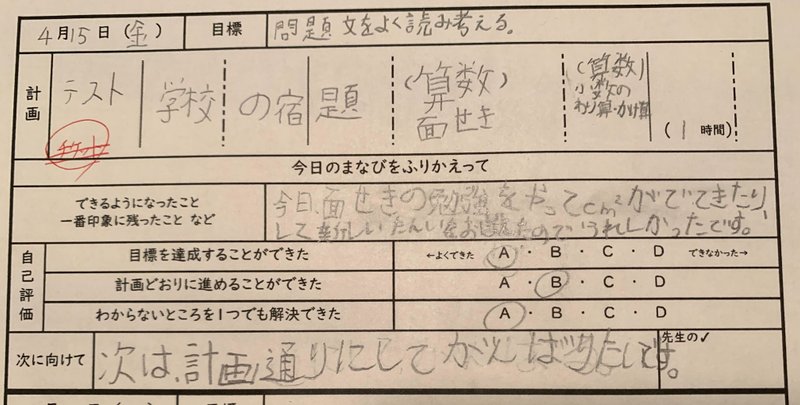 4月15日(金) 目標 問題文をよく読み考える。
計画 テスト 学校の宿題 (算数) 面せき (算数) 小数の わり算・かけ算 (1時間)
チケット
今日のまなびをふりかえって
できるようになったこと
一番印象に残ったこと など
今日、面せきの勉強をやってcm²がでてきたり、
して新しいたんいを たのでうれしかったです。
自己評価
目標を達成することができた ←よくできた A・B・C・D できなかった→
計画どおりに進めることができた A・B・C・D
わからないところを1つでも解決できた A・B・C・D
次に向けて 次は、計画通りにしてがんばりたいです。 先生の✓